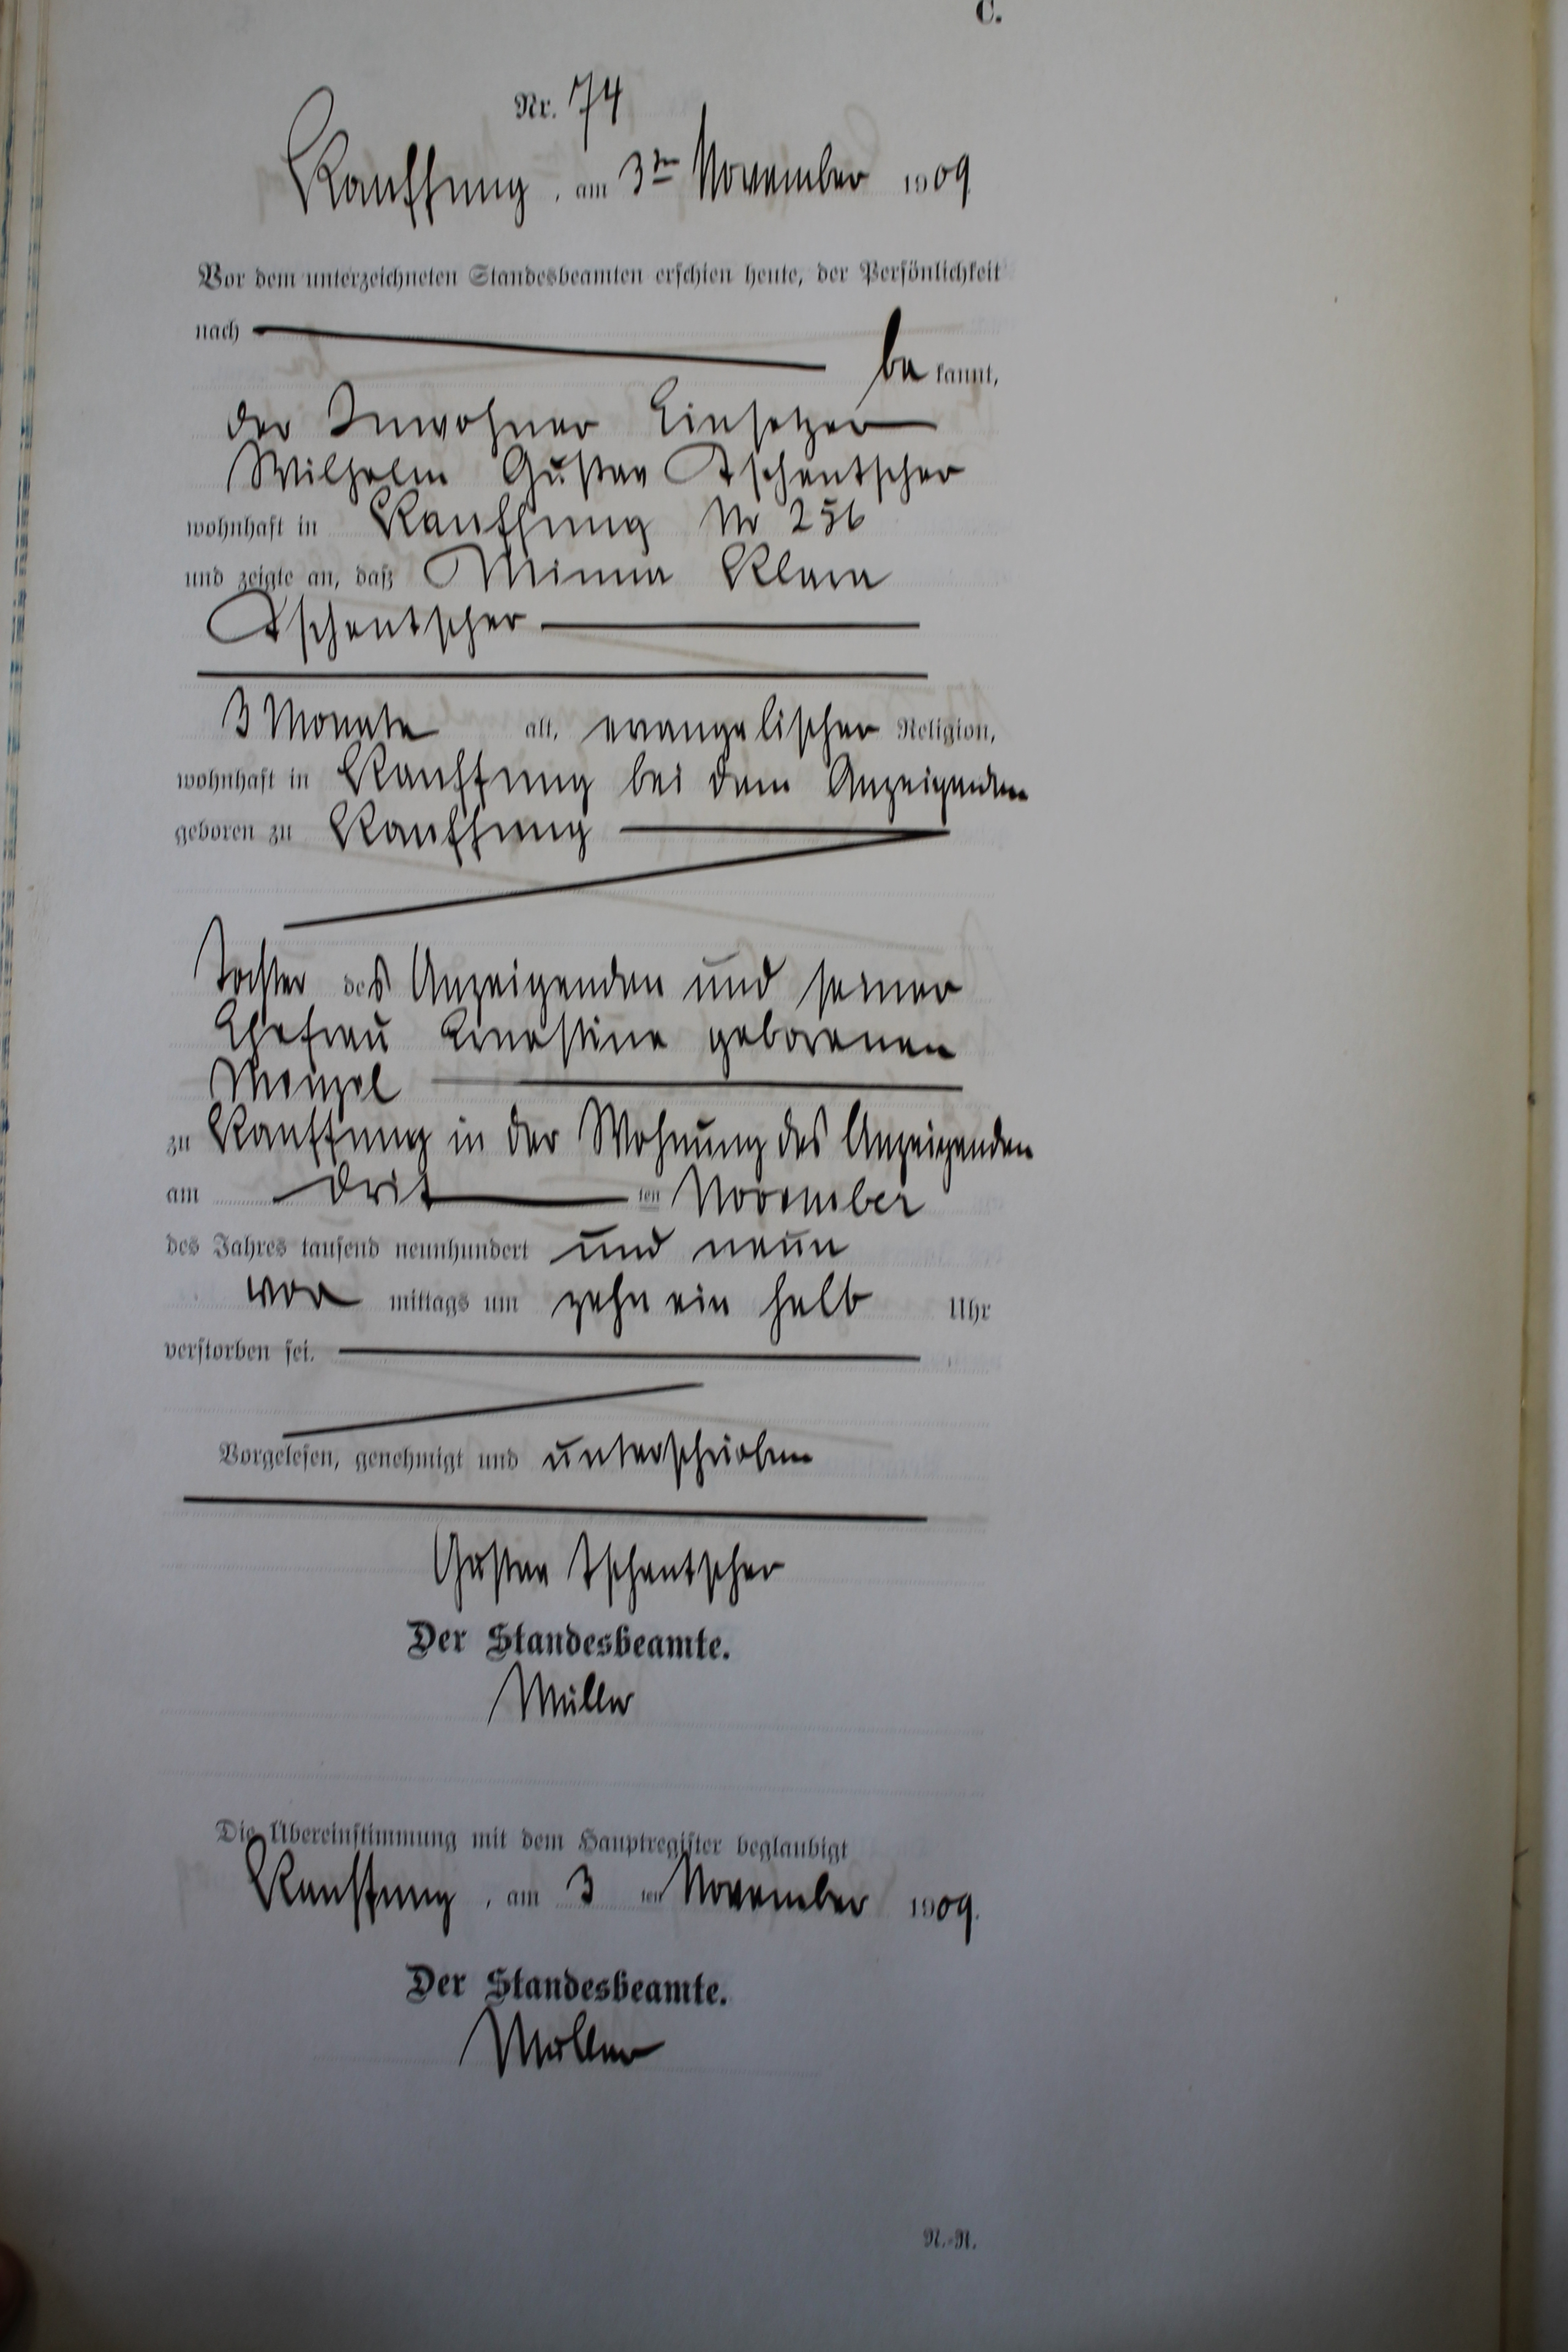 C.
Nr. 74
Kauffung, am 3ten November 1909
Vor dem unterzeichneten Standesbeamten erschien heute, der Persönlichkeit
nach
be kannt,
der Inwohner Einsetzer
Wilhelm Gustav Tschentscher
wohnhaft in Kauffung Nr 256
und zeigte an, daß Minna Klara
Tschentscher
3 Monate alt, evangelischer Religion,
wohnhaft in Kauffung bei dem Anzeigenden
geboren zu Kauffung
Tochter des Anzeigenden und seiner
Ehefrau Ernestine geborenen
Menzel
zu Kauffung in der Wohnung des Anzeigenden
am drit ten November
des Jahres tausend neunhundert und neun
vor mittags um zehn ein halb Uhr
verstorben sei.
Vorgelesen, genehmigt und unterschrieben
Gustav Tschentscher
Der Standesbeamte.
Müller
Die Übereinstimmung mit dem Hauptregister beglaubigt
Kauffung, am 3 ten November 1909.
Der Standesbeamte.
Müller
N.-N.